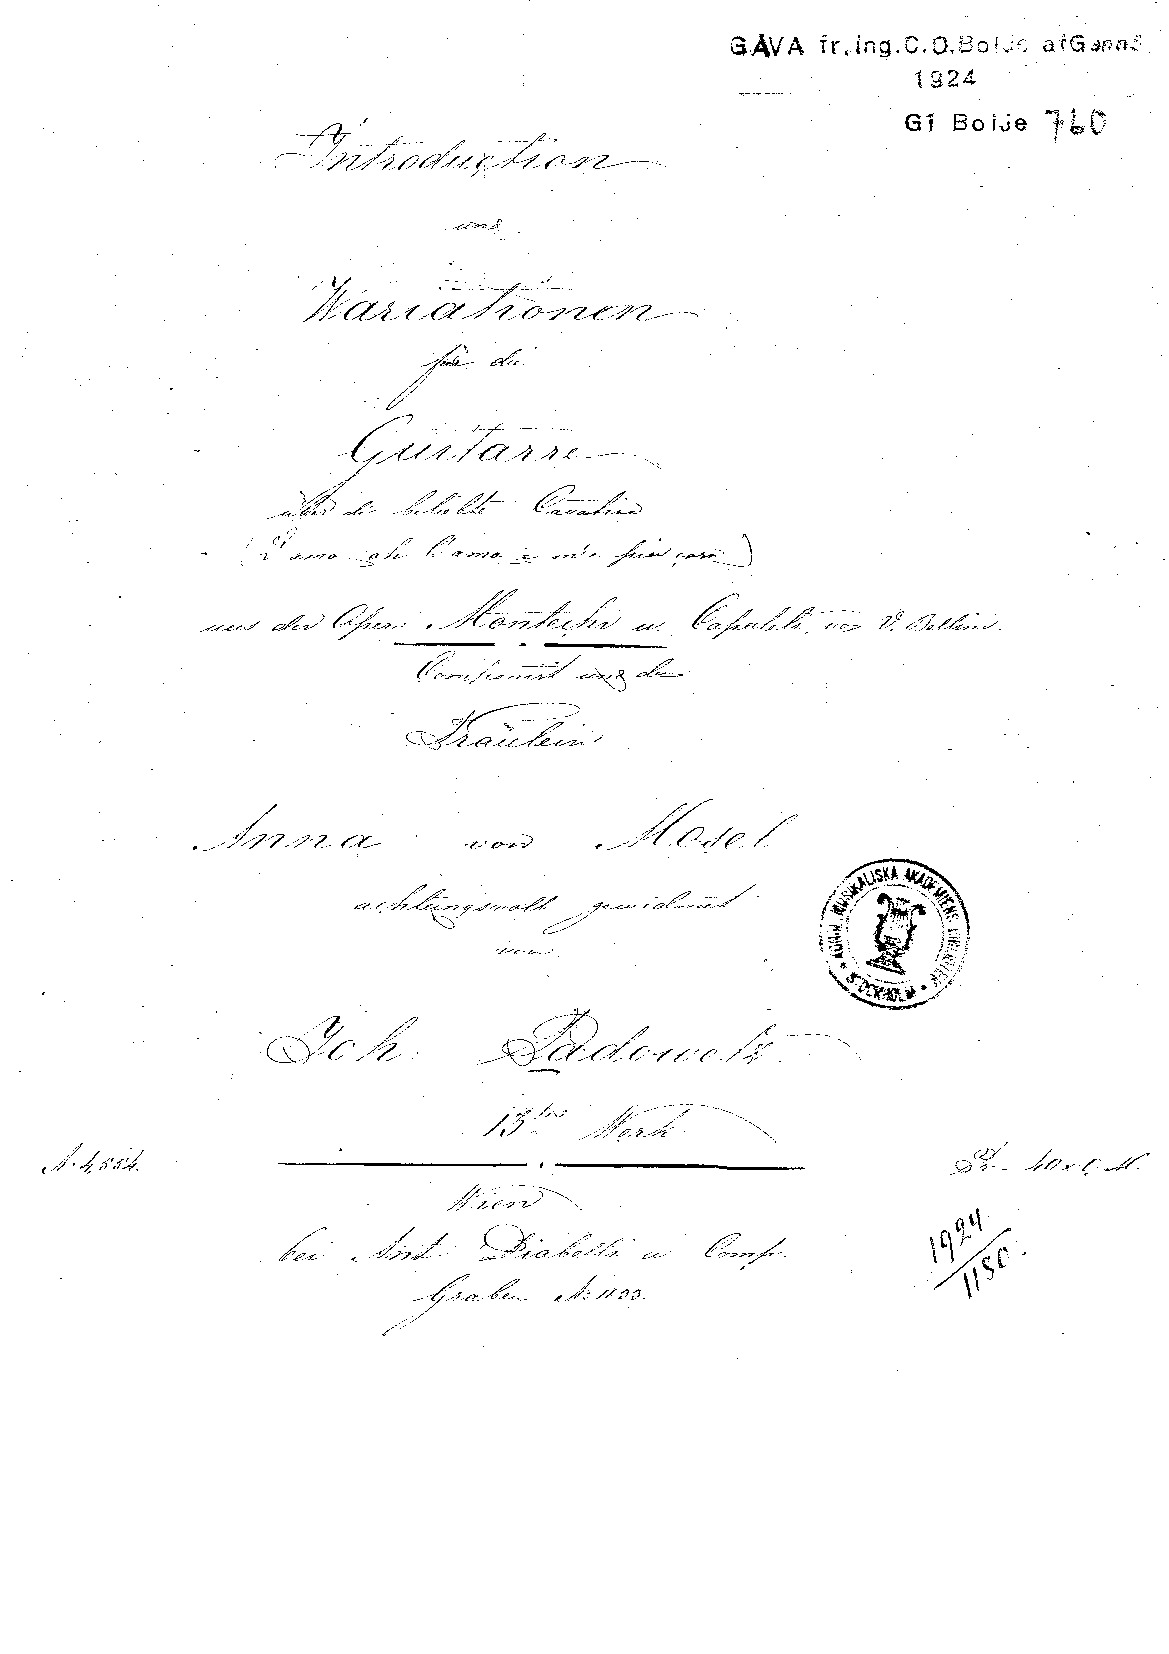 GÅVA fr. ing. C.O. Boije af Gennäs
1924
Gf Boije 760
Introduction
und
Variationen
für die
Guitarre
über die beliebte Cavatine
(L'amo ah l'amo e m'è più cara)
aus der Oper: Montechi u. Capuleti, von V. Bellini.
Componirt und der
Fräulein
Anna von Mosel
achtungsvoll gewidmet
von
KUNGL. MUSIKALISKA AKADEMIENS BIBLIOTEK
STOCKHOLM
Joh. Padowetz
13tes Werk
N. 4554.
Pr. 40 x C.M.
Wien
bei Ant. Diabelli u Comp.
Graben No 1133.
1924
1180.